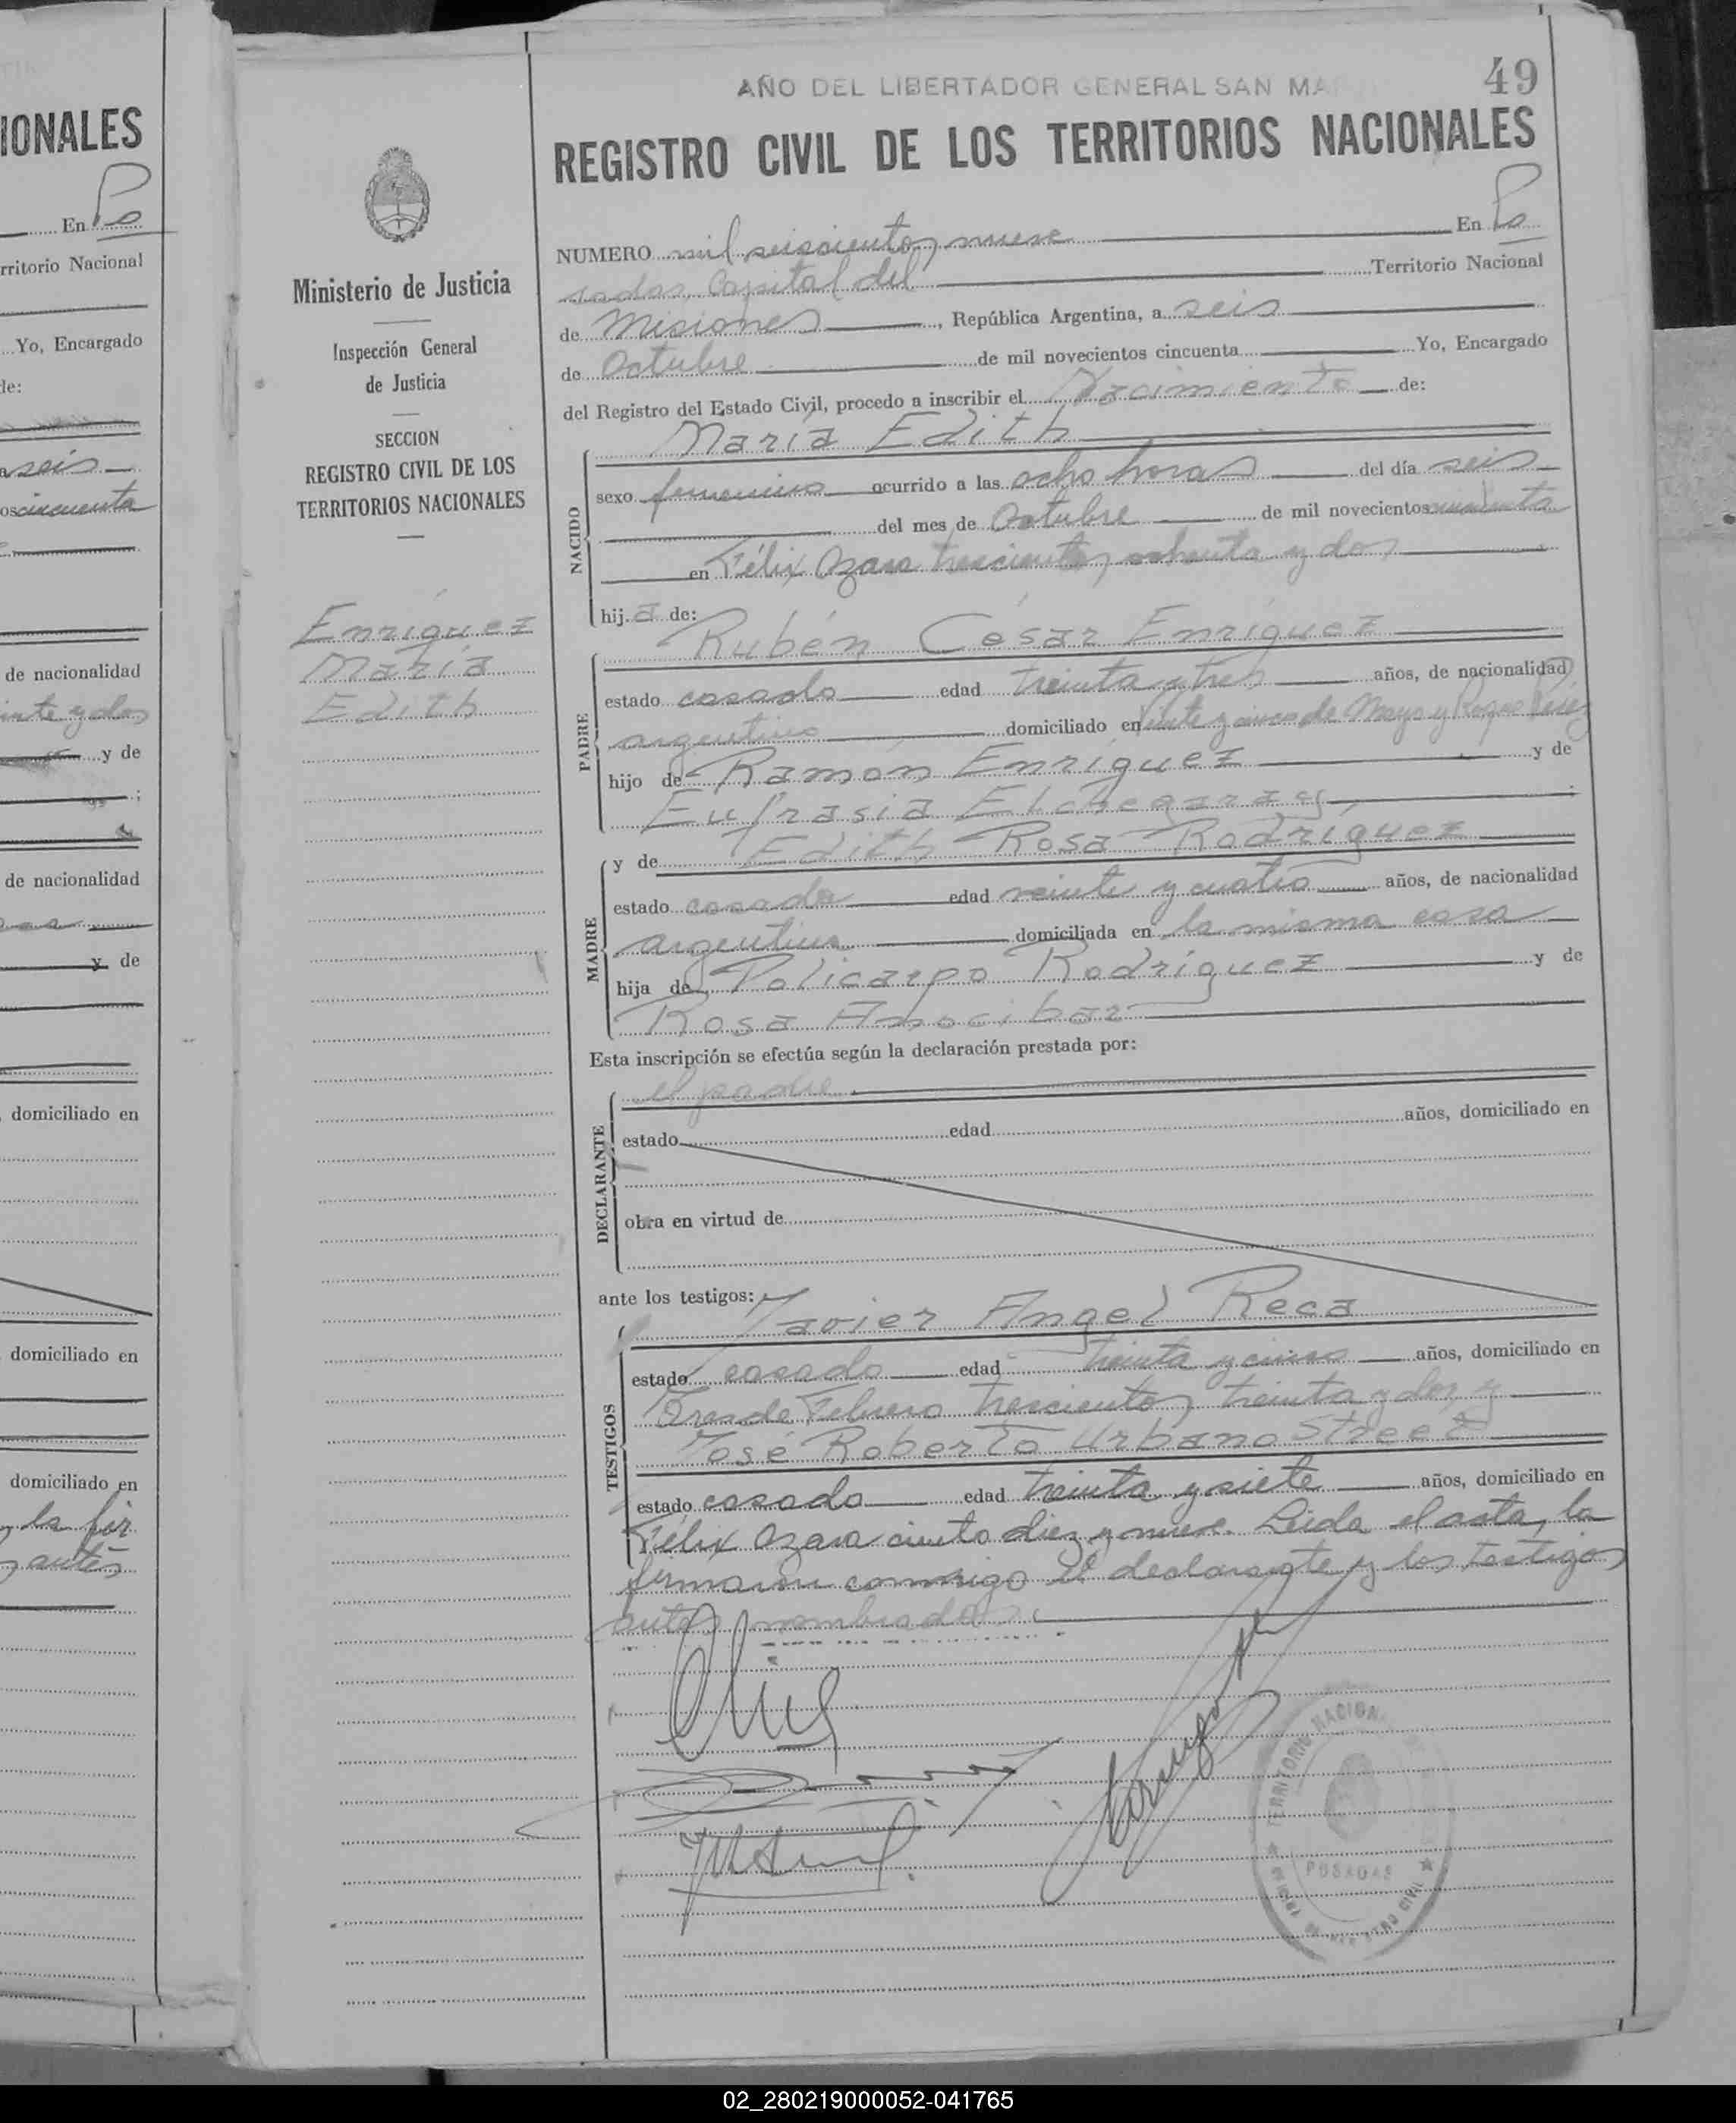 IONALES
En Po
rritorio Nacional
Yo, Encargado
de:
a seis
os cincuenta
de nacionalidad
inte y dos
y de
de nacionalidad
y de
, domiciliado en
domiciliado en
domiciliado en
y la fir
antes
Ministerio de Justicia
Inspección General
de Justicia
SECCION
REGISTRO CIVIL DE LOS
TERRITORIOS NACIONALES
Enríquez
María
Edith
AÑO DEL LIBERTADOR GENERAL SAN MA
49
REGISTRO CIVIL DE LOS TERRITORIOS NACIONALES
NUMERO mil seiscientos nueve En Po
sadas Capital del Territorio Nacional
de Misiones, República Argentina, a seis
de Octubre de mil novecientos cincuenta Yo, Encargado
del Registro del Estado Civil, procedo a inscribir el Nacimiento de:
María Edith
NACIDO
sexo femenino ocurrido a las ocho horas del día seis
del mes de Octubre de mil novecientos cincuenta
en Félix Azara trescientos ochenta y dos
hija de:
Rubén César Enríquez
PADRE
estado casado edad treinta y tres años, de nacionalidad
argentino domiciliado en Veinte y cinco de Mayo y Roque Pérez
hijo de Ramón Enríquez y de
Eufrasia Etchegaray,
MADRE
y de Edith Rosa Rodríguez
estado casada edad veinte y cuatro años, de nacionalidad
argentina domiciliada en la misma casa
hija de Policarpo Rodríguez y de
Rosa
Esta inscripción se efectúa según la declaración prestada por:
el padre
DECLARANTE
estado edad años, domiciliado en
obra en virtud de
ante los testigos:
Javier Angel Reca
TESTIGOS
estado casado edad treinta y cinco años, domiciliado en
Tres de Febrero trescientos treinta y dos y
José Roberto Urbano Street
estado casado edad treinta y siete años, domiciliado en
Félix Azara ciento diez y nueve. Leida el acta, la
firmaron conmigo el declarante y los testigos
antes nombrados
TERRITORIO NACIONAL
POSADAS
02_280219000052-041765